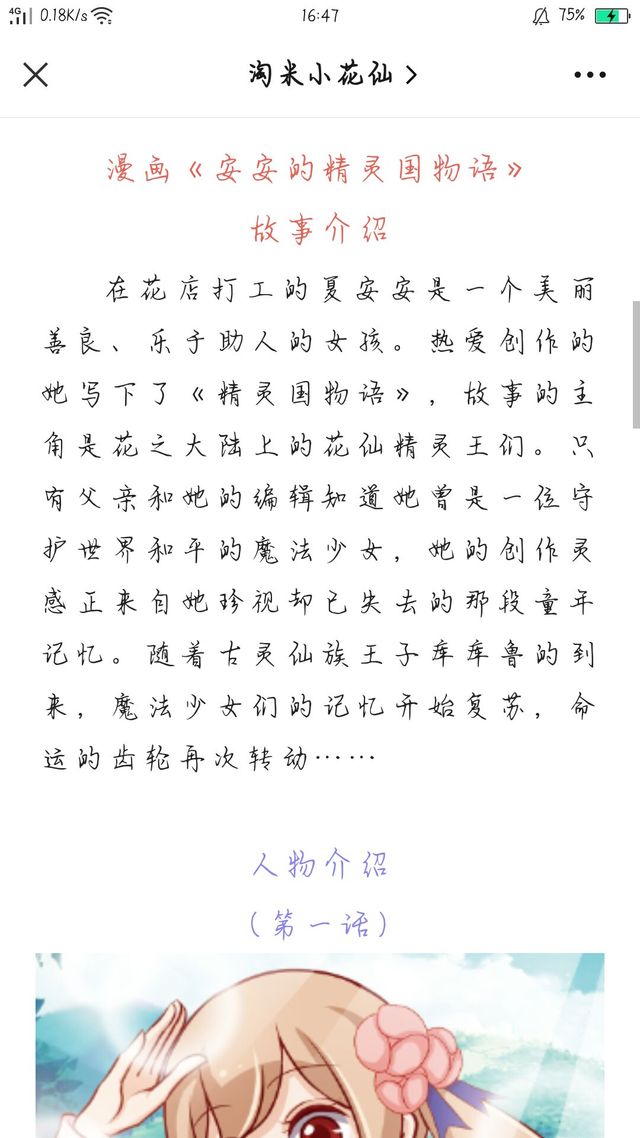 4G 0.18K/s 16:47 75%
淘米小花仙
漫画《安安的精灵国物语》
故事介绍
在花店打工的夏安安是一个美丽
善良、乐于助人的女孩。热爱创作的
她写下了《精灵国物语》，故事的主
角是花之大陆上的花仙精灵王们。只
有父亲和她的编辑知道她曾是一位守
护世界和平的魔法少女，她的创作灵
感正来自她珍视却已失去的那段童年
记忆。随着古灵仙族王子库库鲁的到
来，魔法少女们的记忆开始复苏，命
运的齿轮再次转动……
人物介绍
（第一话）